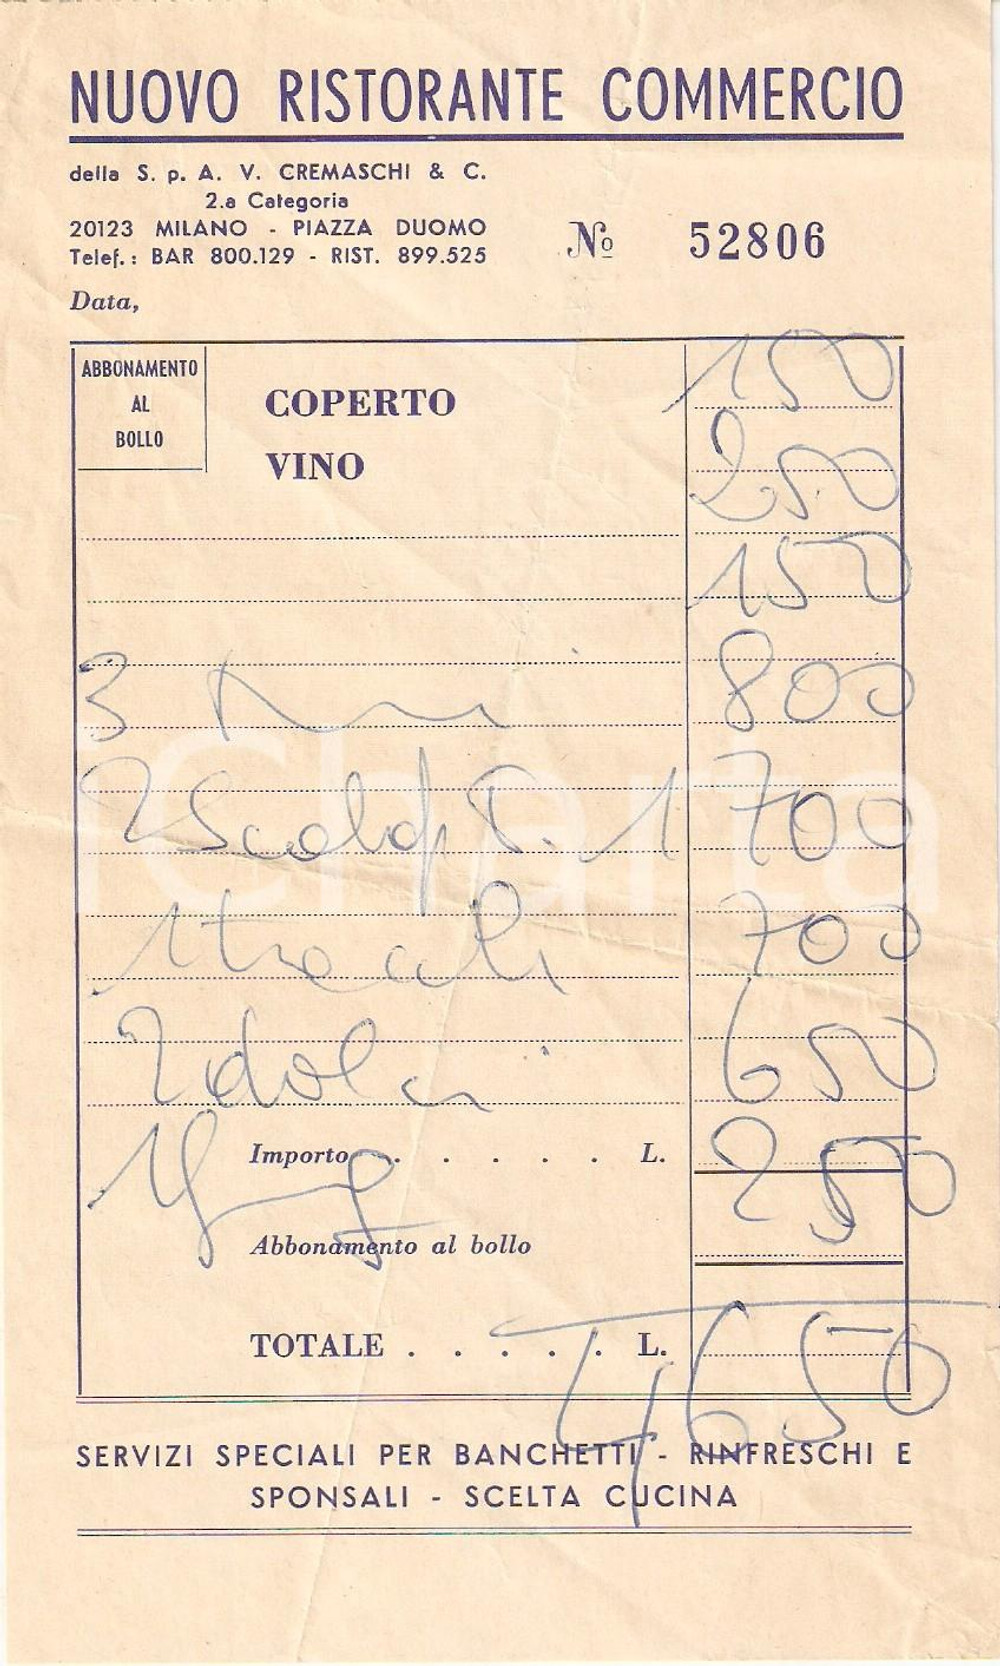 NUOVO RISTORANTE COMMERCIO
della S. p. A. V. CREMASCHI & C.
2.a Categoria
20123 MILANO - PIAZZA DUOMO
Telef.: BAR 800.129 - RIST. 899.525
No 52806
Data,
ABBONAMENTO
AL
BOLLO
COPERTO 150
VINO 250
150
3 800
2 1700
1 700
2 dolci 650
Importo . . . . . L. 250
Abbonamento al bollo
TOTALE . . . . . L. 4650
SERVIZI SPECIALI PER BANCHETTI - RINFRESCHI E
SPONSALI - SCELTA CUCINA
Charta